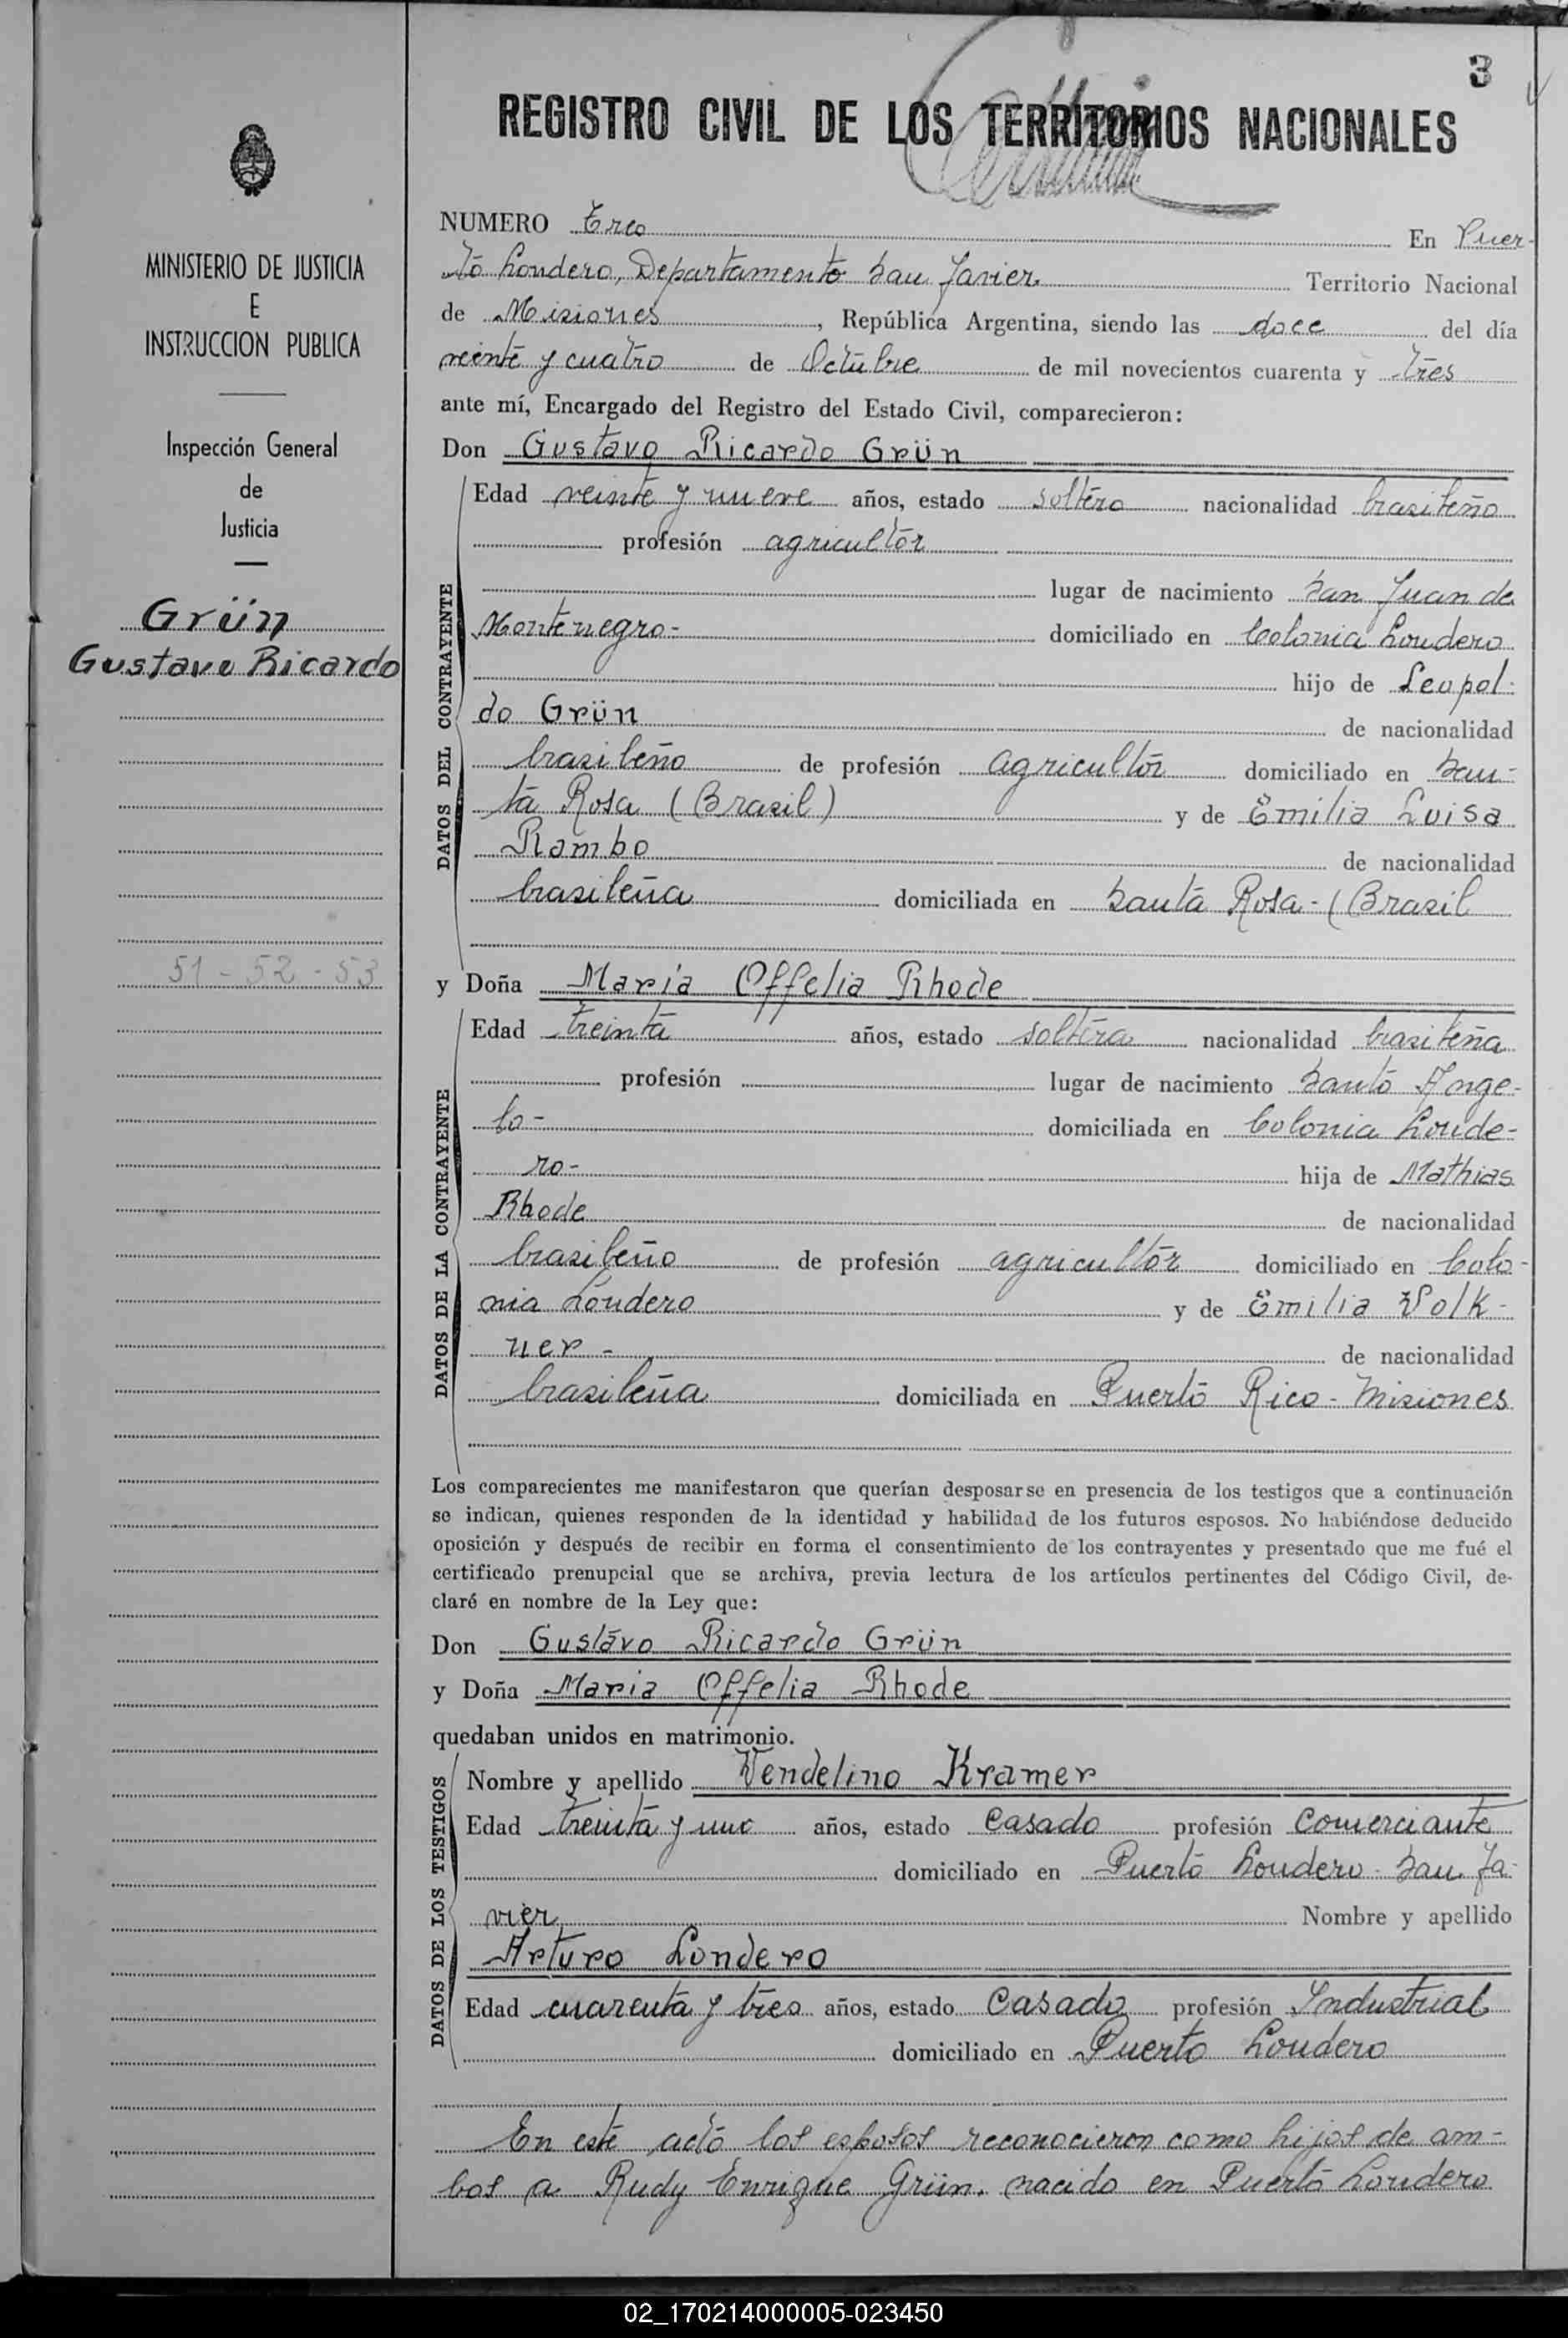 3
REGISTRO CIVIL DE LOS TERRITORIOS NACIONALES
MINISTERIO DE JUSTICIA
E
INSTRUCCION PUBLICA
Inspección General
de
Justicia
Grün
Gustavo Ricardo
51 - 52 - 53
NUMERO Tres En Puer-
to Londero, Departamento San Javier. Territorio Nacional
de Misiones, República Argentina, siendo las doce del día
veinte y cuatro de Octubre de mil novecientos cuarenta y tres
ante mí, Encargado del Registro del Estado Civil, comparecieron:
Don Gustavo Ricardo Grün
DATOS DEL CONTRAYENTE
Edad veinte y nueve años, estado soltero nacionalidad brasileño
profesión agricultor
lugar de nacimiento San Juan de
Montenegro- domiciliado en Colonia Londero
hijo de Leopol-
do Grün de nacionalidad
brasileño de profesión agricultor domiciliado en San-
ta Rosa (Brasil) y de Emilia Luisa
Rambo de nacionalidad
brasileña domiciliada en Santa Rosa-(Brasil
y Doña Maria Offelia Rhode
DATOS DE LA CONTRAYENTE
Edad treinta años, estado soltera nacionalidad brasileña
profesión lugar de nacimiento Santo Ange-
lo- domiciliada en Colonia Londe-
ro- hija de Mathias
Rhode de nacionalidad
brasileño de profesión agricultor domiciliado en Colo-
nia Londero y de Emilia Volk-
ner- de nacionalidad
brasileña domiciliada en Puerto Rico-Misiones
Los comparecientes me manifestaron que querían desposarse en presencia de los testigos que a continuación
se indican, quienes responden de la identidad y habilidad de los futuros esposos. No habiéndose deducido
oposición y después de recibir en forma el consentimiento de los contrayentes y presentado que me fué el
certificado prenupcial que se archiva, previa lectura de los artículos pertinentes del Código Civil, de-
claré en nombre de la Ley que:
Don Gustavo Ricardo Grün
y Doña Maria Offelia Rhode
quedaban unidos en matrimonio.
DATOS DE LOS TESTIGOS
Nombre y apellido Vendelino Kramer
Edad treinta y uno años, estado Casado profesión Comerciante
domiciliado en Puerto Londero-San Ja-
vier Nombre y apellido
Arturo Londero
Edad cuarenta y tres años, estado Casado profesión Industrial
domiciliado en Puerto Londero
En este acto los esposos reconocieron como hijos de am-
bos a Rudy Enrique Grün. nacido en Puerto Londero
02_170214000005-023450